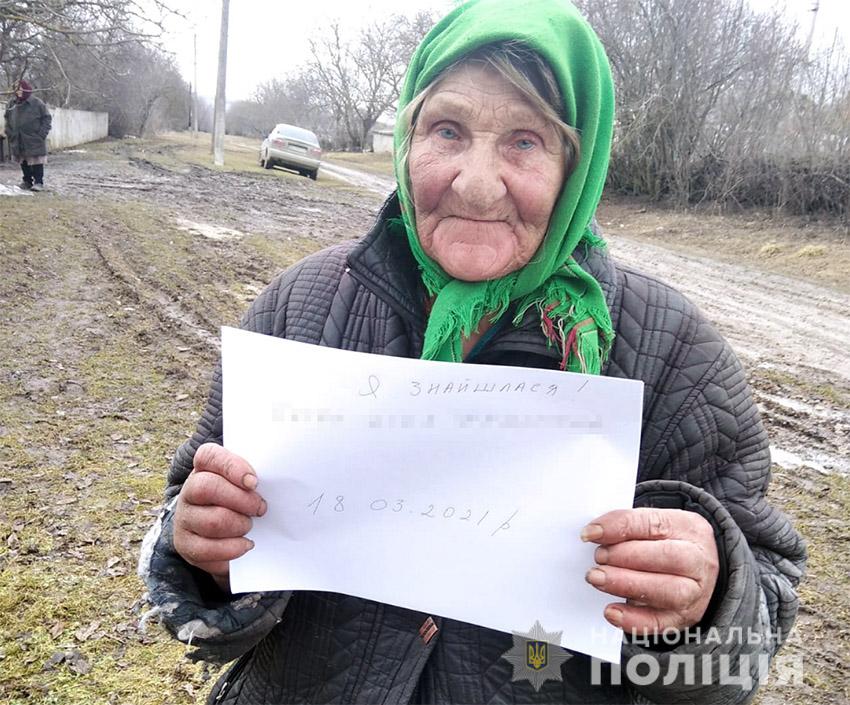 Я ЗНАЙШЛАСЯ!
18 03.2021р
НАЦІОНАЛЬНА
ПОЛІЦІЯ